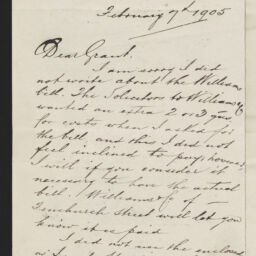 February 7th 1905
Dear Grant.
I am sorry I did
not write about the Williams
bill. The Solicitors to Williams &c
wanted an extra 2 or 3 gns
for costs when I asked for
the bill, and this I did not
feel inclined to pay; however
I will if you consider it
necessary to have the actual
bill. Williams &c of —
Fenchurch Street will let you
know it is paid
I did not use the enclosed